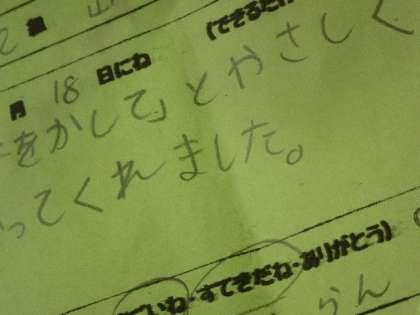 2 組 山
月 18 日にね (できるだけ
をかして」とやさしく
ってくれました。
いね・すてきだね・ありがとう)
らん